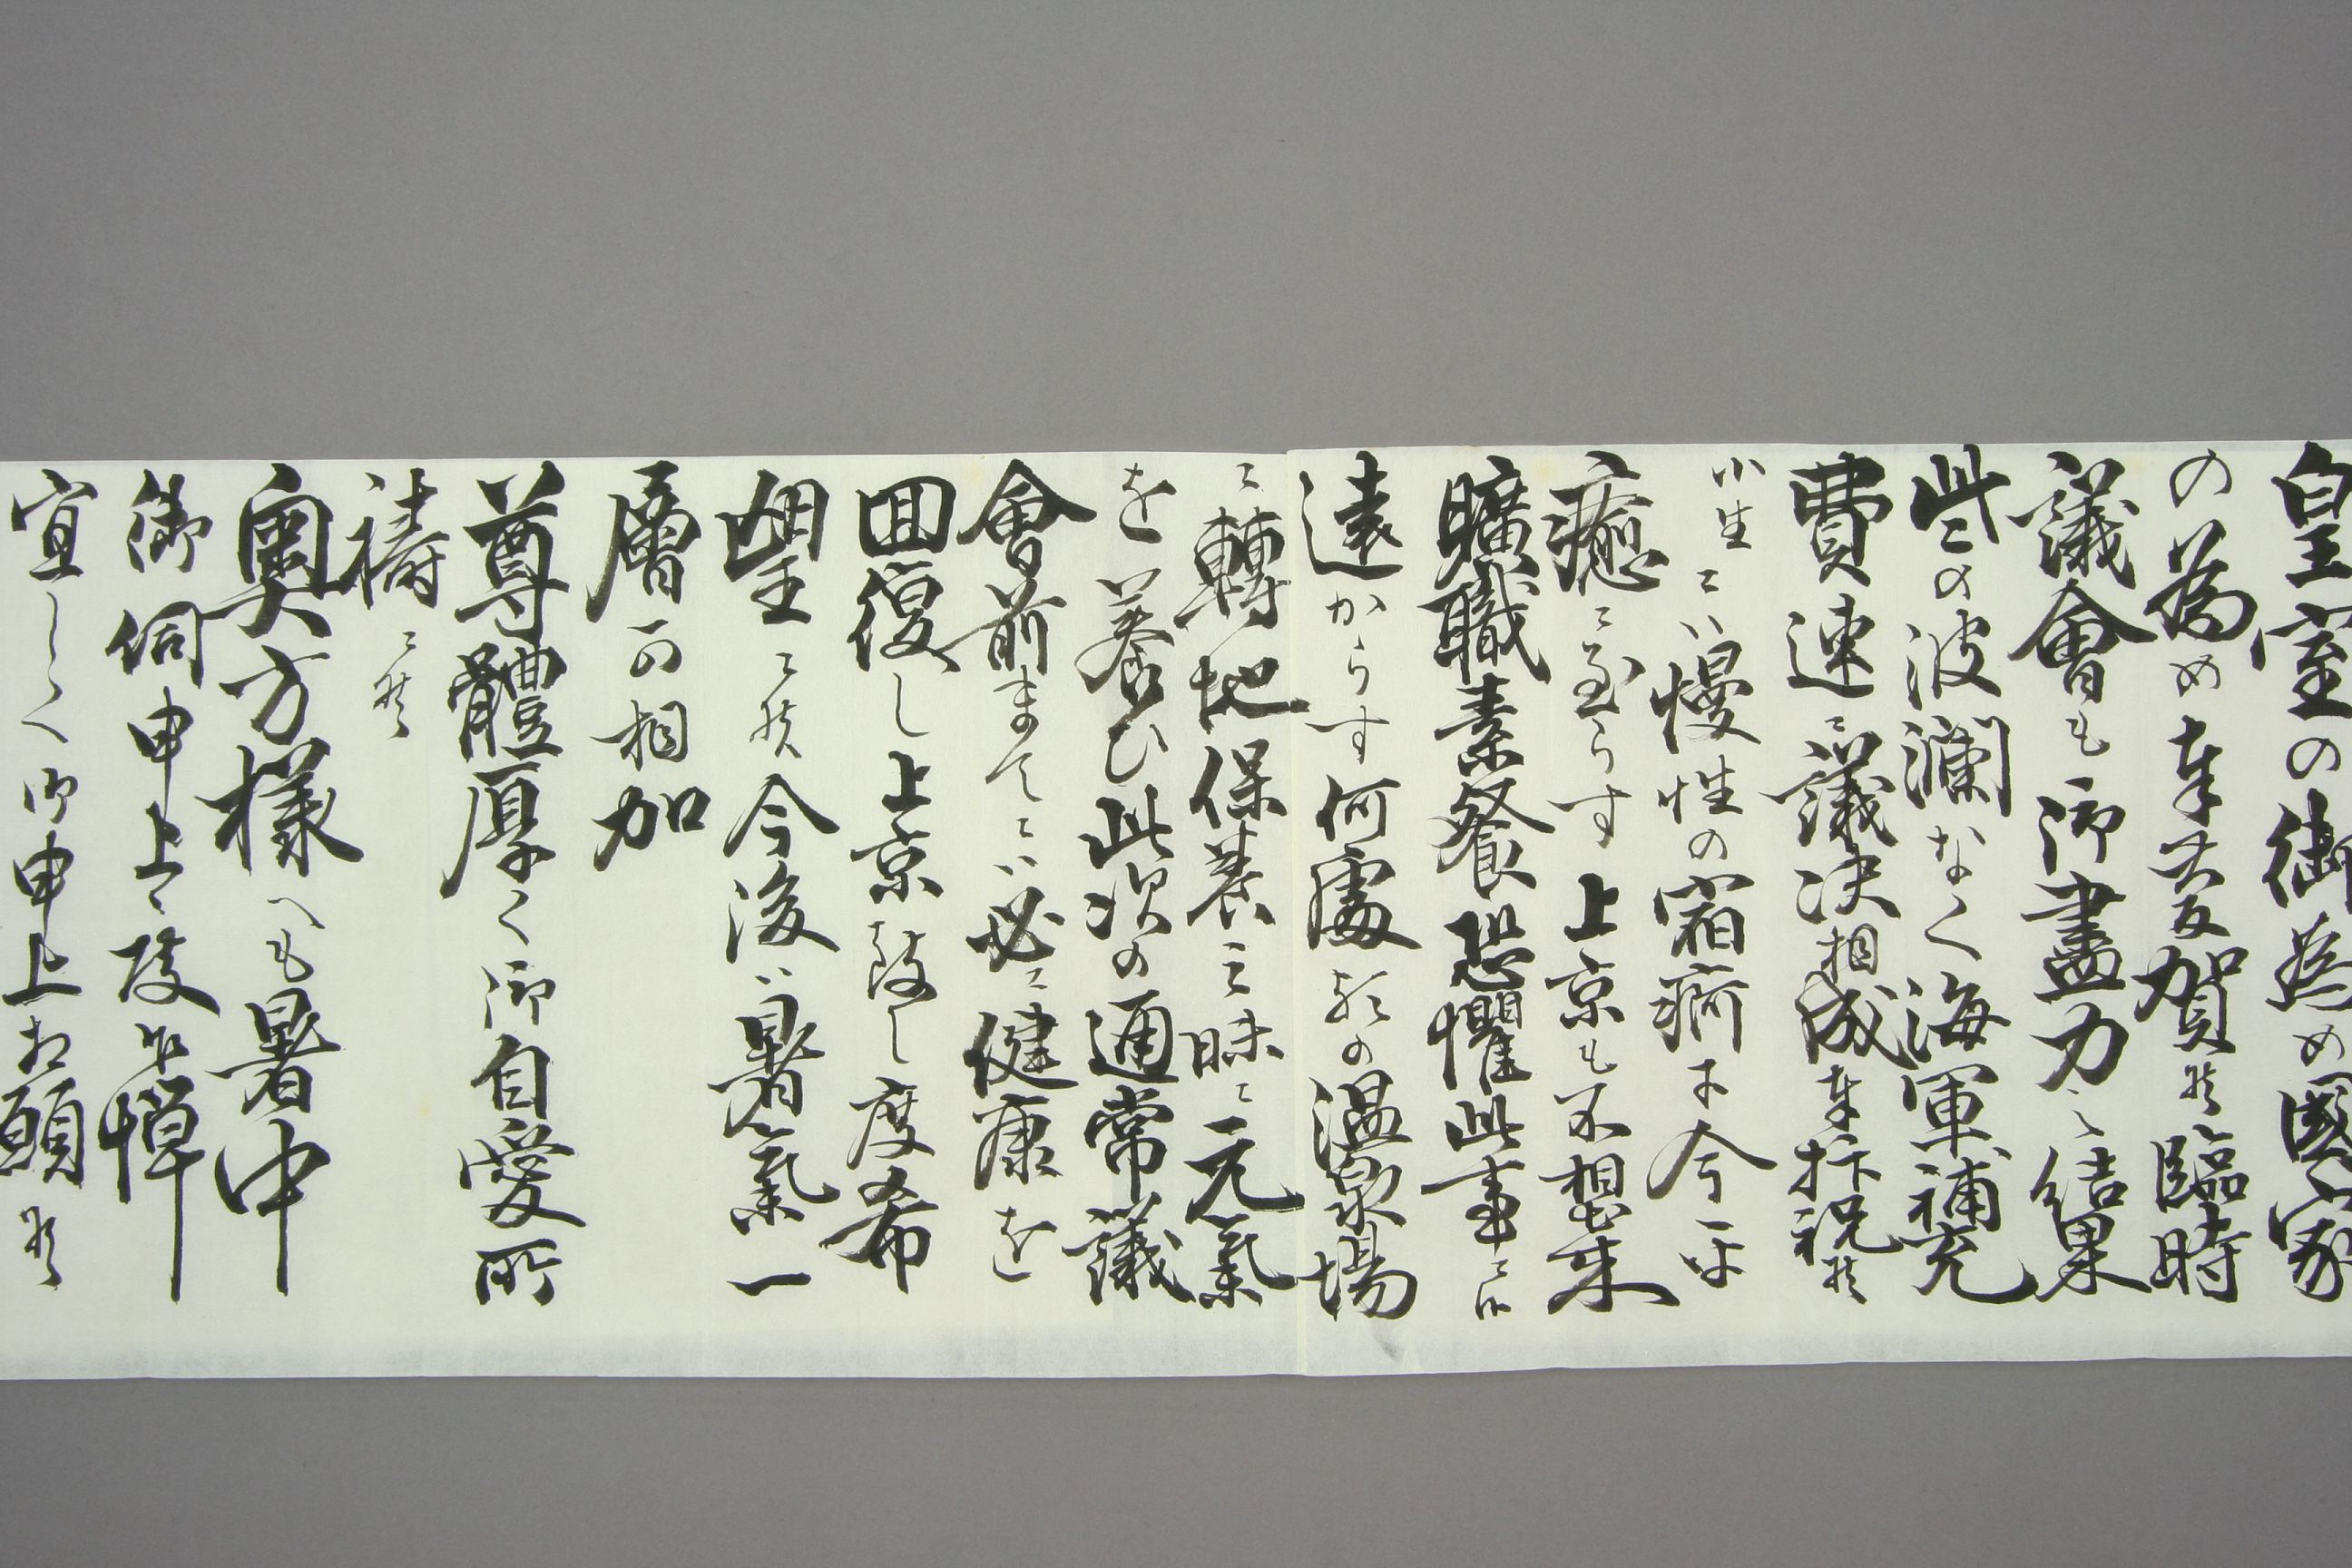 皇室の御為め國家
の為め奉大賀候臨時
議會も御盡力之結果
些の波瀾なく海軍補充
費速ニ議決相成奉抃祝候
小生ニハ慢性の宿痾于今平
癒ニ至らす上京も不相出来
曠職素餐恐懼此事ニ御
遠からす何處歟の温泉場
ニ轉地保養三昧ニ元氣
を養ひ此次の通常議
會前まてニハ必ニ健康を
囬復し上京致し度希
望ニ候今後ハ暑氣一
層可相加
尊體厚く御自愛所
禱ニ候
奥方様へも暑中
御伺申上候乍憚
宜しく御申上相願候